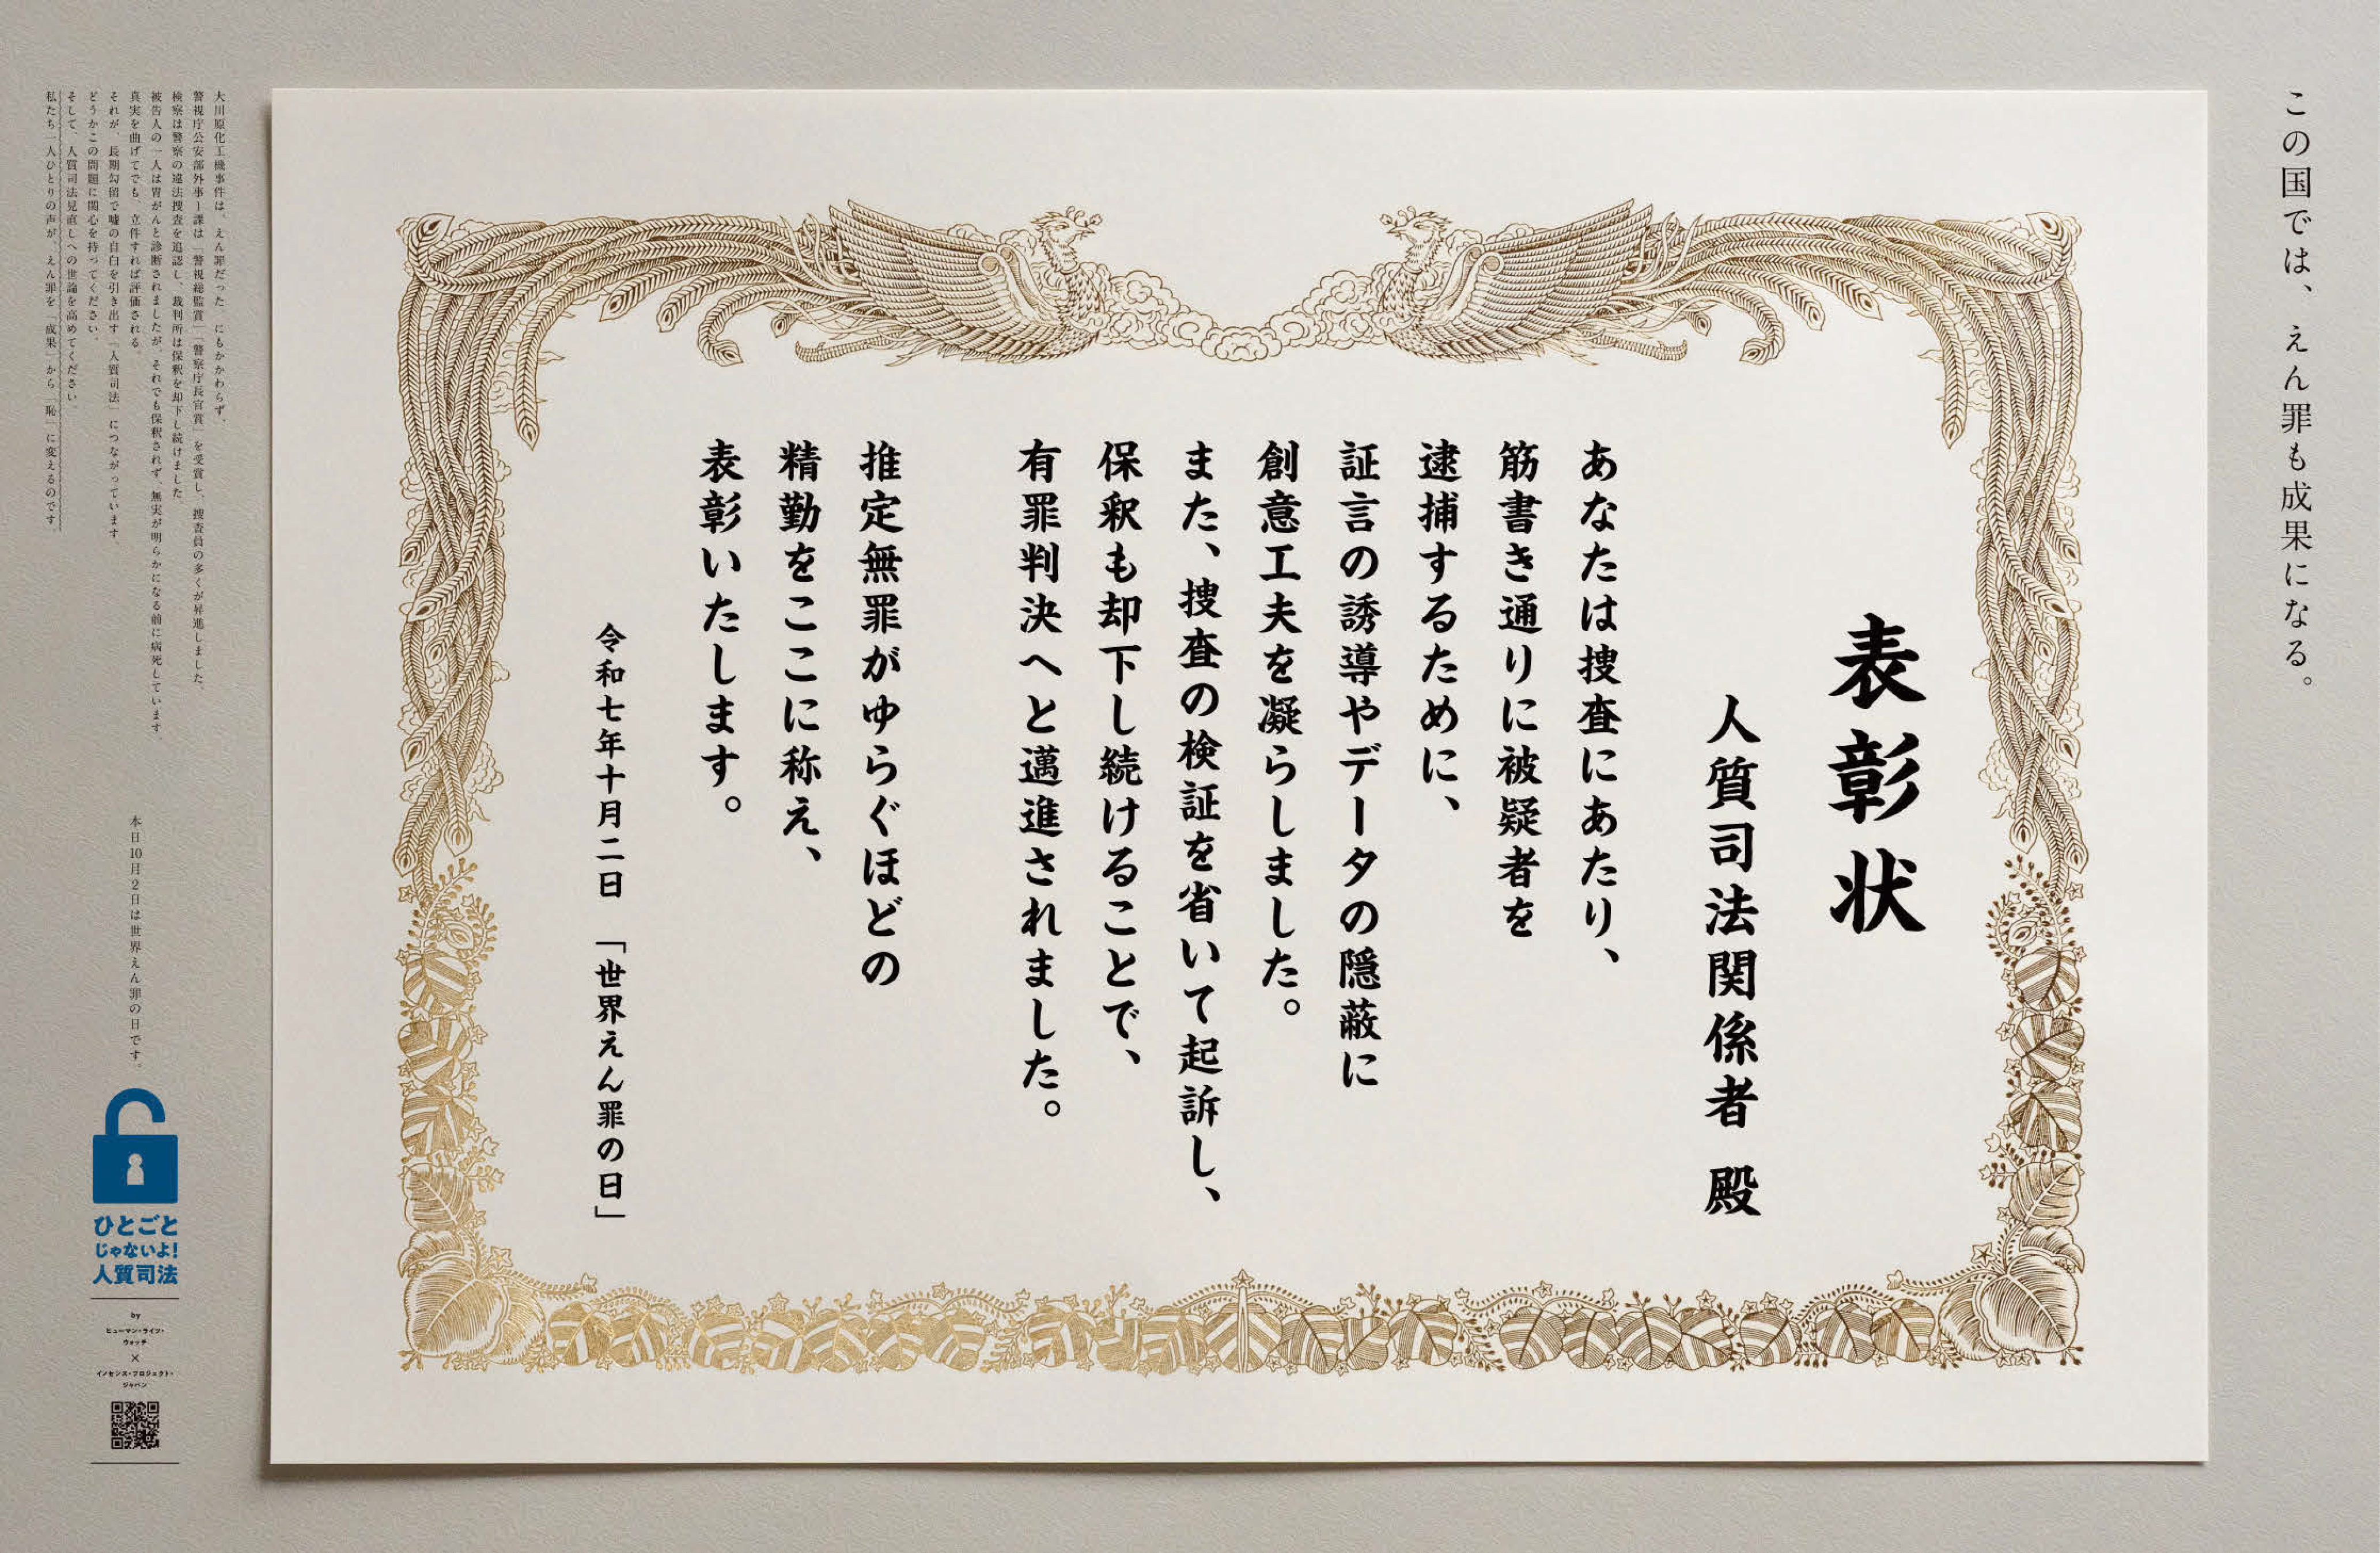 この国では、えん罪も成果になる。
表彰状
人質司法関係者 殿
あなたは捜査にあたり、
筋書き通りに被疑者を
逮捕するために、
証言の誘導やデータの隠蔽に
創意工夫を凝らしました。
また、捜査の検証を省いて起訴し、
保釈も却下し続けることで、
有罪判決へと邁進されました。
推定無罪がゆらぐほどの
精勤をここに称え、
表彰いたします。
令和七年十月二日 「世界えん罪の日」
大川原化工機事件は、えん罪だった。にもかかわらず、
警視庁公安部外事1課は「警視総監賞」「警察庁長官賞」を受賞し、捜査員の多くが昇進しました。
検察は警察の違法捜査を追認し、裁判所は保釈を却下し続けました。
被告人の一人は胃がんと診断されましたが、それでも保釈されず、無実が明らかになる前に病死しています。
真実を曲げてでも、立件すれば評価される。
それが、長期勾留で嘘の自白を引き出す「人質司法」につながっています。
どうかこの問題に関心を持ってください。
そして、人質司法見直しへの世論を高めてください。
私たち一人ひとりの声が、えん罪を「成果」から「恥」に変えるのです。
本日10月2日は世界えん罪の日です。
ひとごと
じゃないよ!
人質司法
by
ヒューマン・ライツ・
ウォッチ
×
イノセンス・プロジェクト・
ジャパン